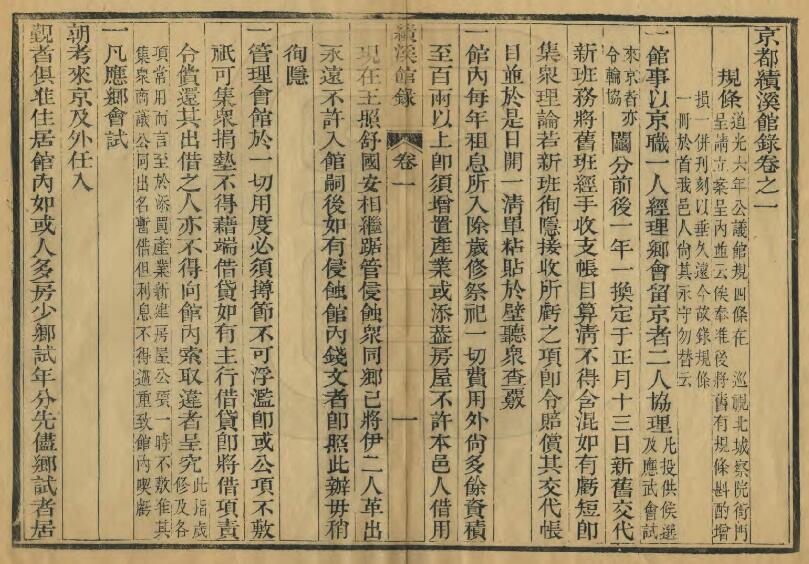 京都績溪館錄卷之一
規條道光六年公議館規四條在　巡視北城察院衙門
呈請立案呈內並云俟奉准後將舊有規條斟酌增
損一併刊刻以垂久遠今故錄規條
一冊於首我邑人尚其永守勿替云
一館事以京職一人經理鄉會留京者二人協理凡投供候選
及應武會試
來京者亦
令輪協闈分前後一年一換定于正月十三日新舊交代
新班務將舊班經手收支帳目算清不得含混如有虧短即
集衆理論若新班徇隱接收所虧之項即令賠償其交代帳
目並於是日開一清單粘貼於壁聽衆查覈
一館內每年租息所入除歲修祭祀一切費用外尚多餘資積
至百兩以上即須增置產業或添葢房屋不許本邑人借用
績溪館錄　卷一　一
現在王照舒國安相繼踞管侵蝕衆同鄉已將伊二人革出
永遠不許入館嗣後如有侵蝕館內錢文者即照此辦毋稍
徇隱
一管理會館於一切用度必須撙節不可浮濫即或公項不敷
祇可集衆捐墊不得藉端借貸如有主行借貸即將借項責
令償還其出借之人亦不得向館內索取違者呈究此指歲
修及各
項常用而言至於添買產業新建房屋公項一時不敷准其
集衆商議公同出名暫借但利息不得過重致館內喫虧
一凡應鄉會試
朝考來京及外任入
覲者俱准住居館內如或人多房少鄉試年分先儘鄉試者居